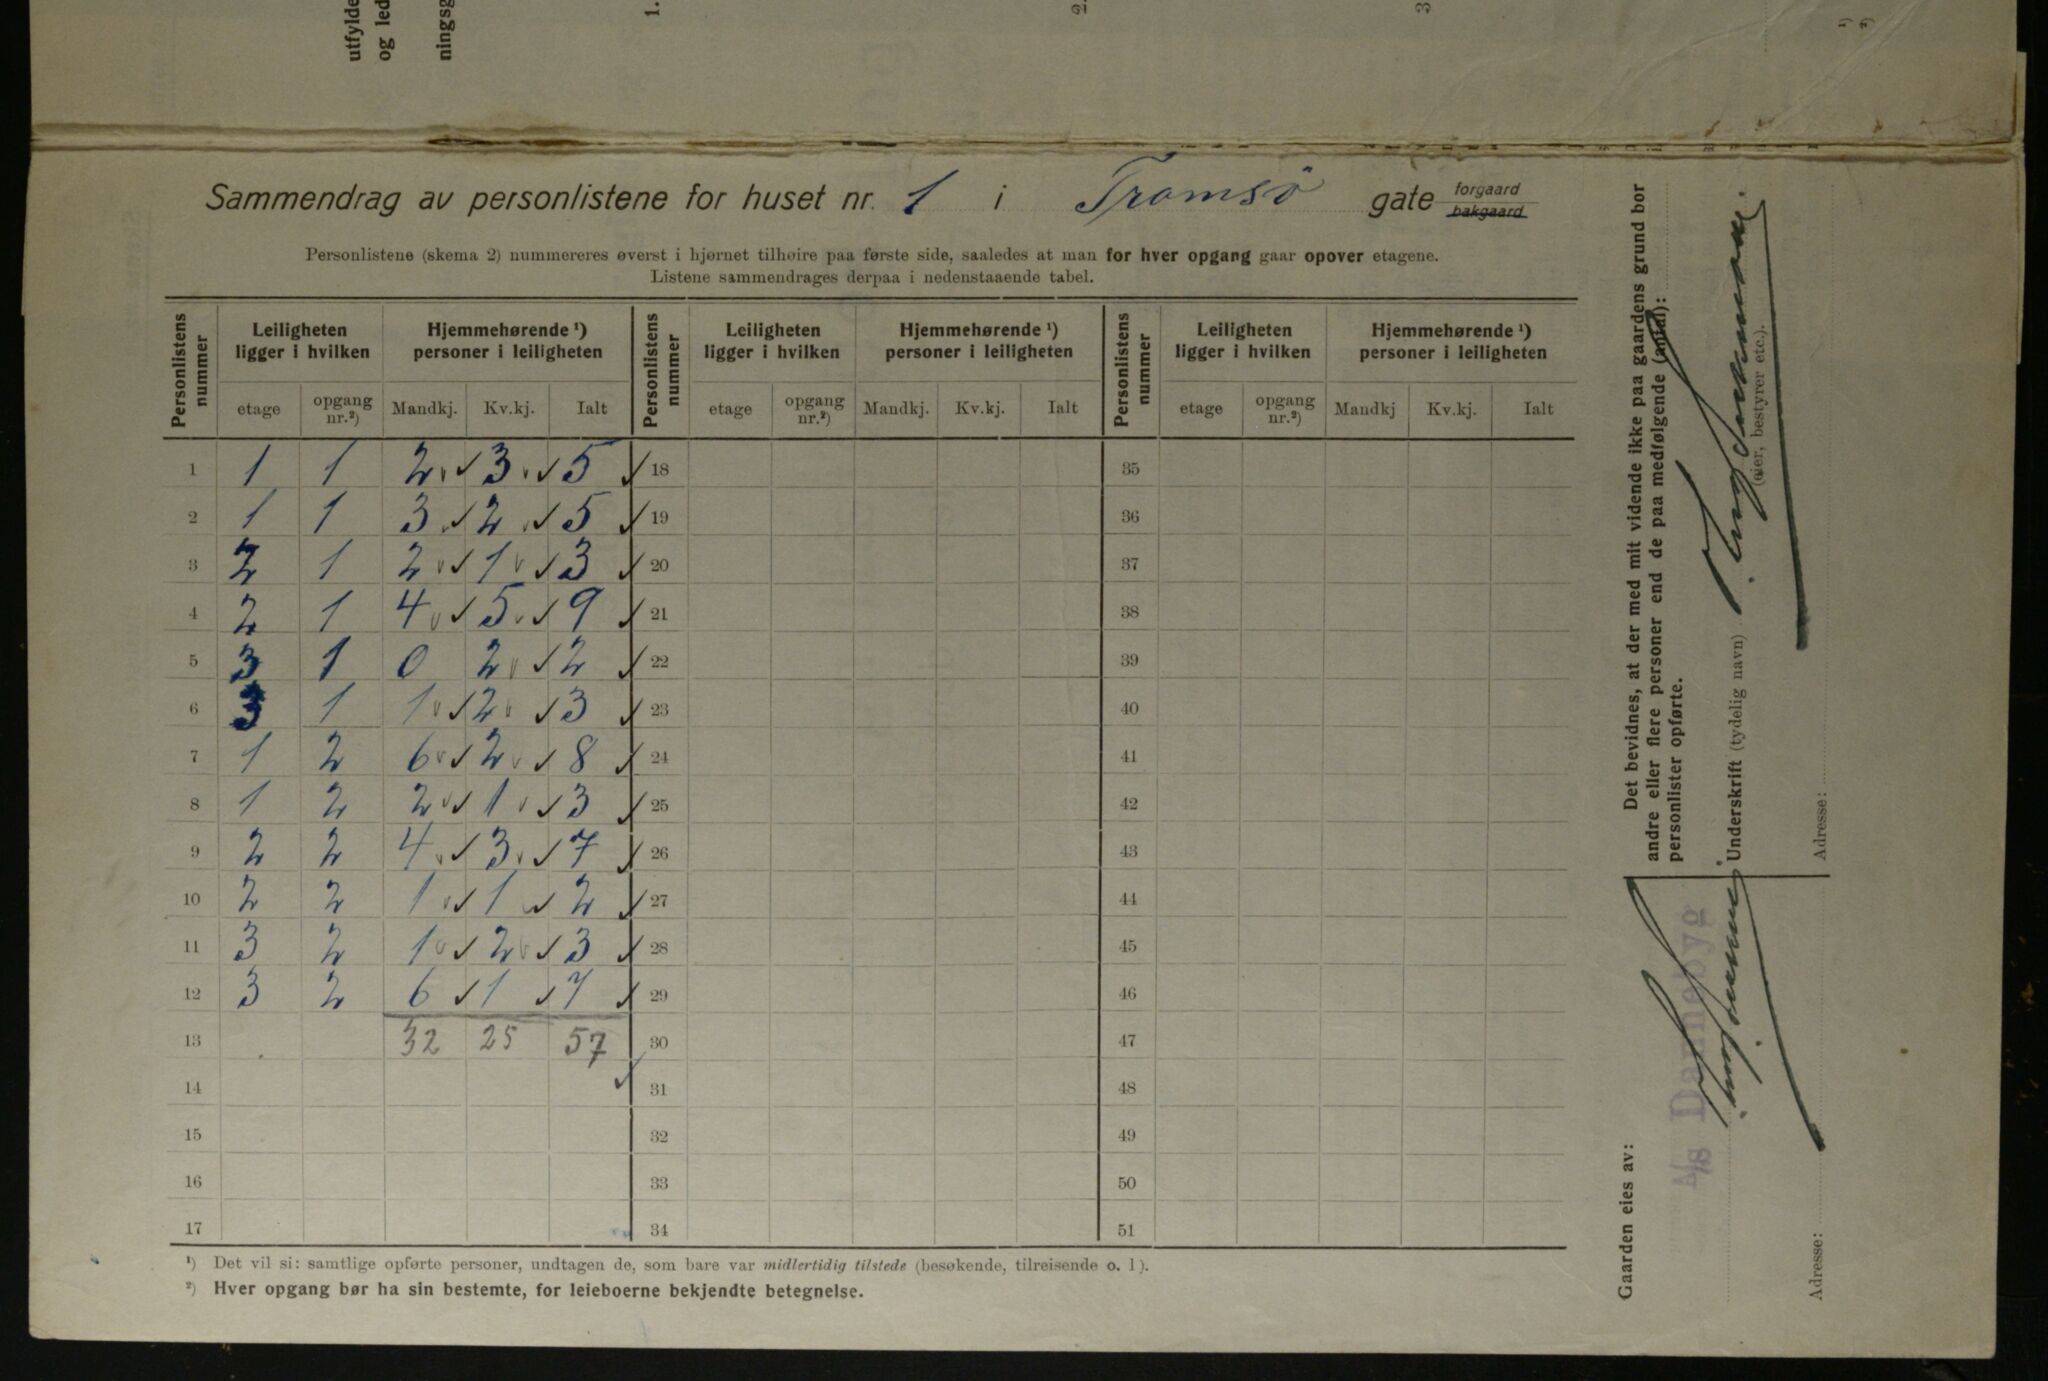 utfylde
og led
ningsg
1.
2.
3
¹)
²)
Sammendrag av personlistene for huset nr. 1 i Tromsö gate forgaard
bakgaard
Personlistene (skema 2) nummereres øverst i hjørnet tilhøire paa første side, saaledes at man for hver opgang gaar opover etagene.
Listene sammendrages derpaa i nedenstaaende tabel.
Personlistens nummer | Leiligheten ligger i hvilken | Hjemmehørende ¹) personer i leiligheten | Personlistens nummer | Leiligheten ligger i hvilken | Hjemmehørende ¹) personer i leiligheten | Personlistens nummer | Leiligheten ligger i hvilken | Hjemmehørende ¹) personer i leiligheten
etage | opgang nr.²) | Mandkj. | Kv.kj. | Ialt | etage | opgang nr.²) | Mandkj. | Kv.kj. | Ialt | etage | opgang nr.²) | Mandkj | Kv.kj. | Ialt
1 | 1 | 1 | 2 | 3 | 5 | 18 | 35
2 | 1 | 1 | 3 | 2 | 5 | 19 | 36
3 | 2 | 1 | 2 | 1 | 3 | 20 | 37
4 | 2 | 1 | 4 | 5 | 9 | 21 | 38
5 | 3 | 1 | 0 | 2 | 2 | 22 | 39
6 | 3 | 1 | 1 | 2 | 3 | 23 | 40
7 | 1 | 2 | 6 | 2 | 8 | 24 | 41
8 | 1 | 2 | 2 | 1 | 3 | 25 | 42
9 | 2 | 2 | 4 | 3 | 7 | 26 | 43
10 | 2 | 2 | 1 | 1 | 2 | 27 | 44
11 | 3 | 2 | 1 | 2 | 3 | 28 | 45
12 | 3 | 2 | 6 | 1 | 7 | 29 | 46
13 | 32 | 25 | 57 | 30 | 47
14 | 31 | 48
15 | 32 | 49
16 | 33 | 50
17 | 34 | 51
¹) Det vil si: samtlige opførte personer, undtagen de, som bare var midlertidig tilstede (besøkende, tilreisende o. l).
²) Hver opgang bør ha sin bestemte, for leieboerne bekjendte betegnelse.
Det bevidnes, at der med mit vidende ikke paa gaardens grund bor
andre eller flere personer end de paa medfølgende (antal):
personlister opførte.
Underskrift (tydelig navn)
(eier, bestyrer etc.).
Adresse:
Gaarden eies av:
A/S Dannebyg
Adresse: